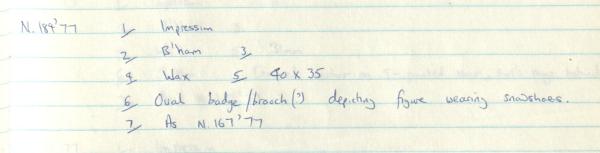 N.189'77 1/ Impression
2/ B'ham 3/
4/ Wax 5/ 40 x 35
6/ Oval badge/brooch(?) depicting figure wearing snowshoes.
7/ As N.167'77